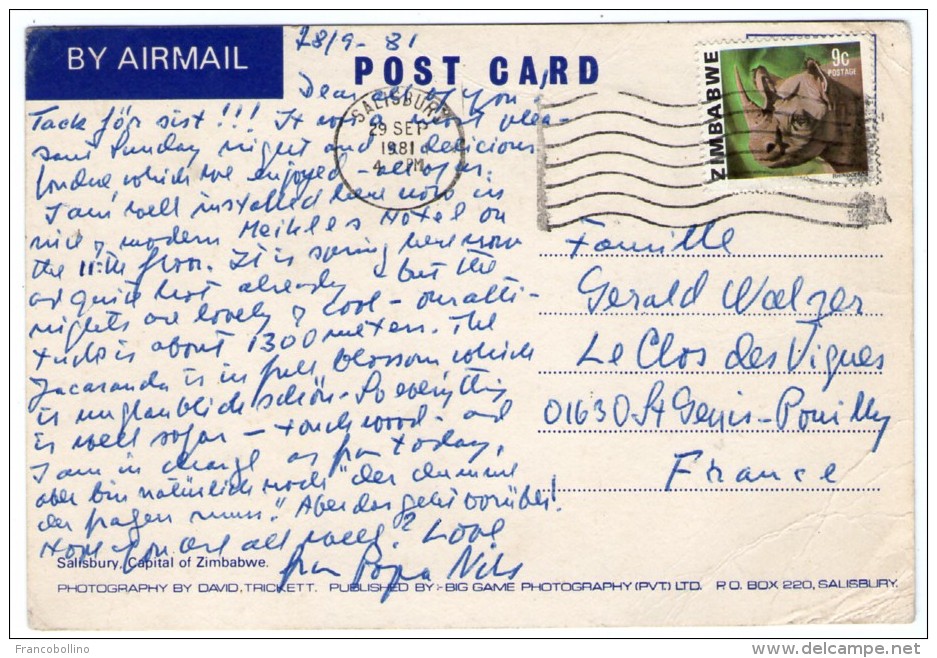 BY AIRMAIL
28/9-81
POST CARD
Dear all of you,
Tack för sist!!! It was a most plea-
sant Sunday night and a delicious
fondue, which we enjoyed
I am well installed here now in
nice & modern Meikles Hotel on
the 11:th floor. It is spring here now
and quite hot already, but the
nights are lovely & cool - our alti-
tude is about 1300 meters. The
Jacaranda is in full blossom which
is unglaublich schön. So everything
is well so far - touch wood - and
I am in charge as from today,
aber bin natürlich noch "der dumme
der fragen muss." Aber das geht vorüber!
Hope you are all well? Love
from Papa Nils
SALISBURY
29 SEP
1981
4 PM
ZIMBABWE
9c
POSTAGE
Famille
Gerald Walzer
Le Clos des Vignes
01630 St Genis-Pouilly
France
Salisbury, Capital of Zimbabwe.
PHOTOGRAPHY BY DAVID TRICKETT. PUBLISHED BY:-BIG GAME PHOTOGRAPHY (PVT.) LTD. P.O. BOX 220, SALISBURY.
Francobollino
delcampe.net